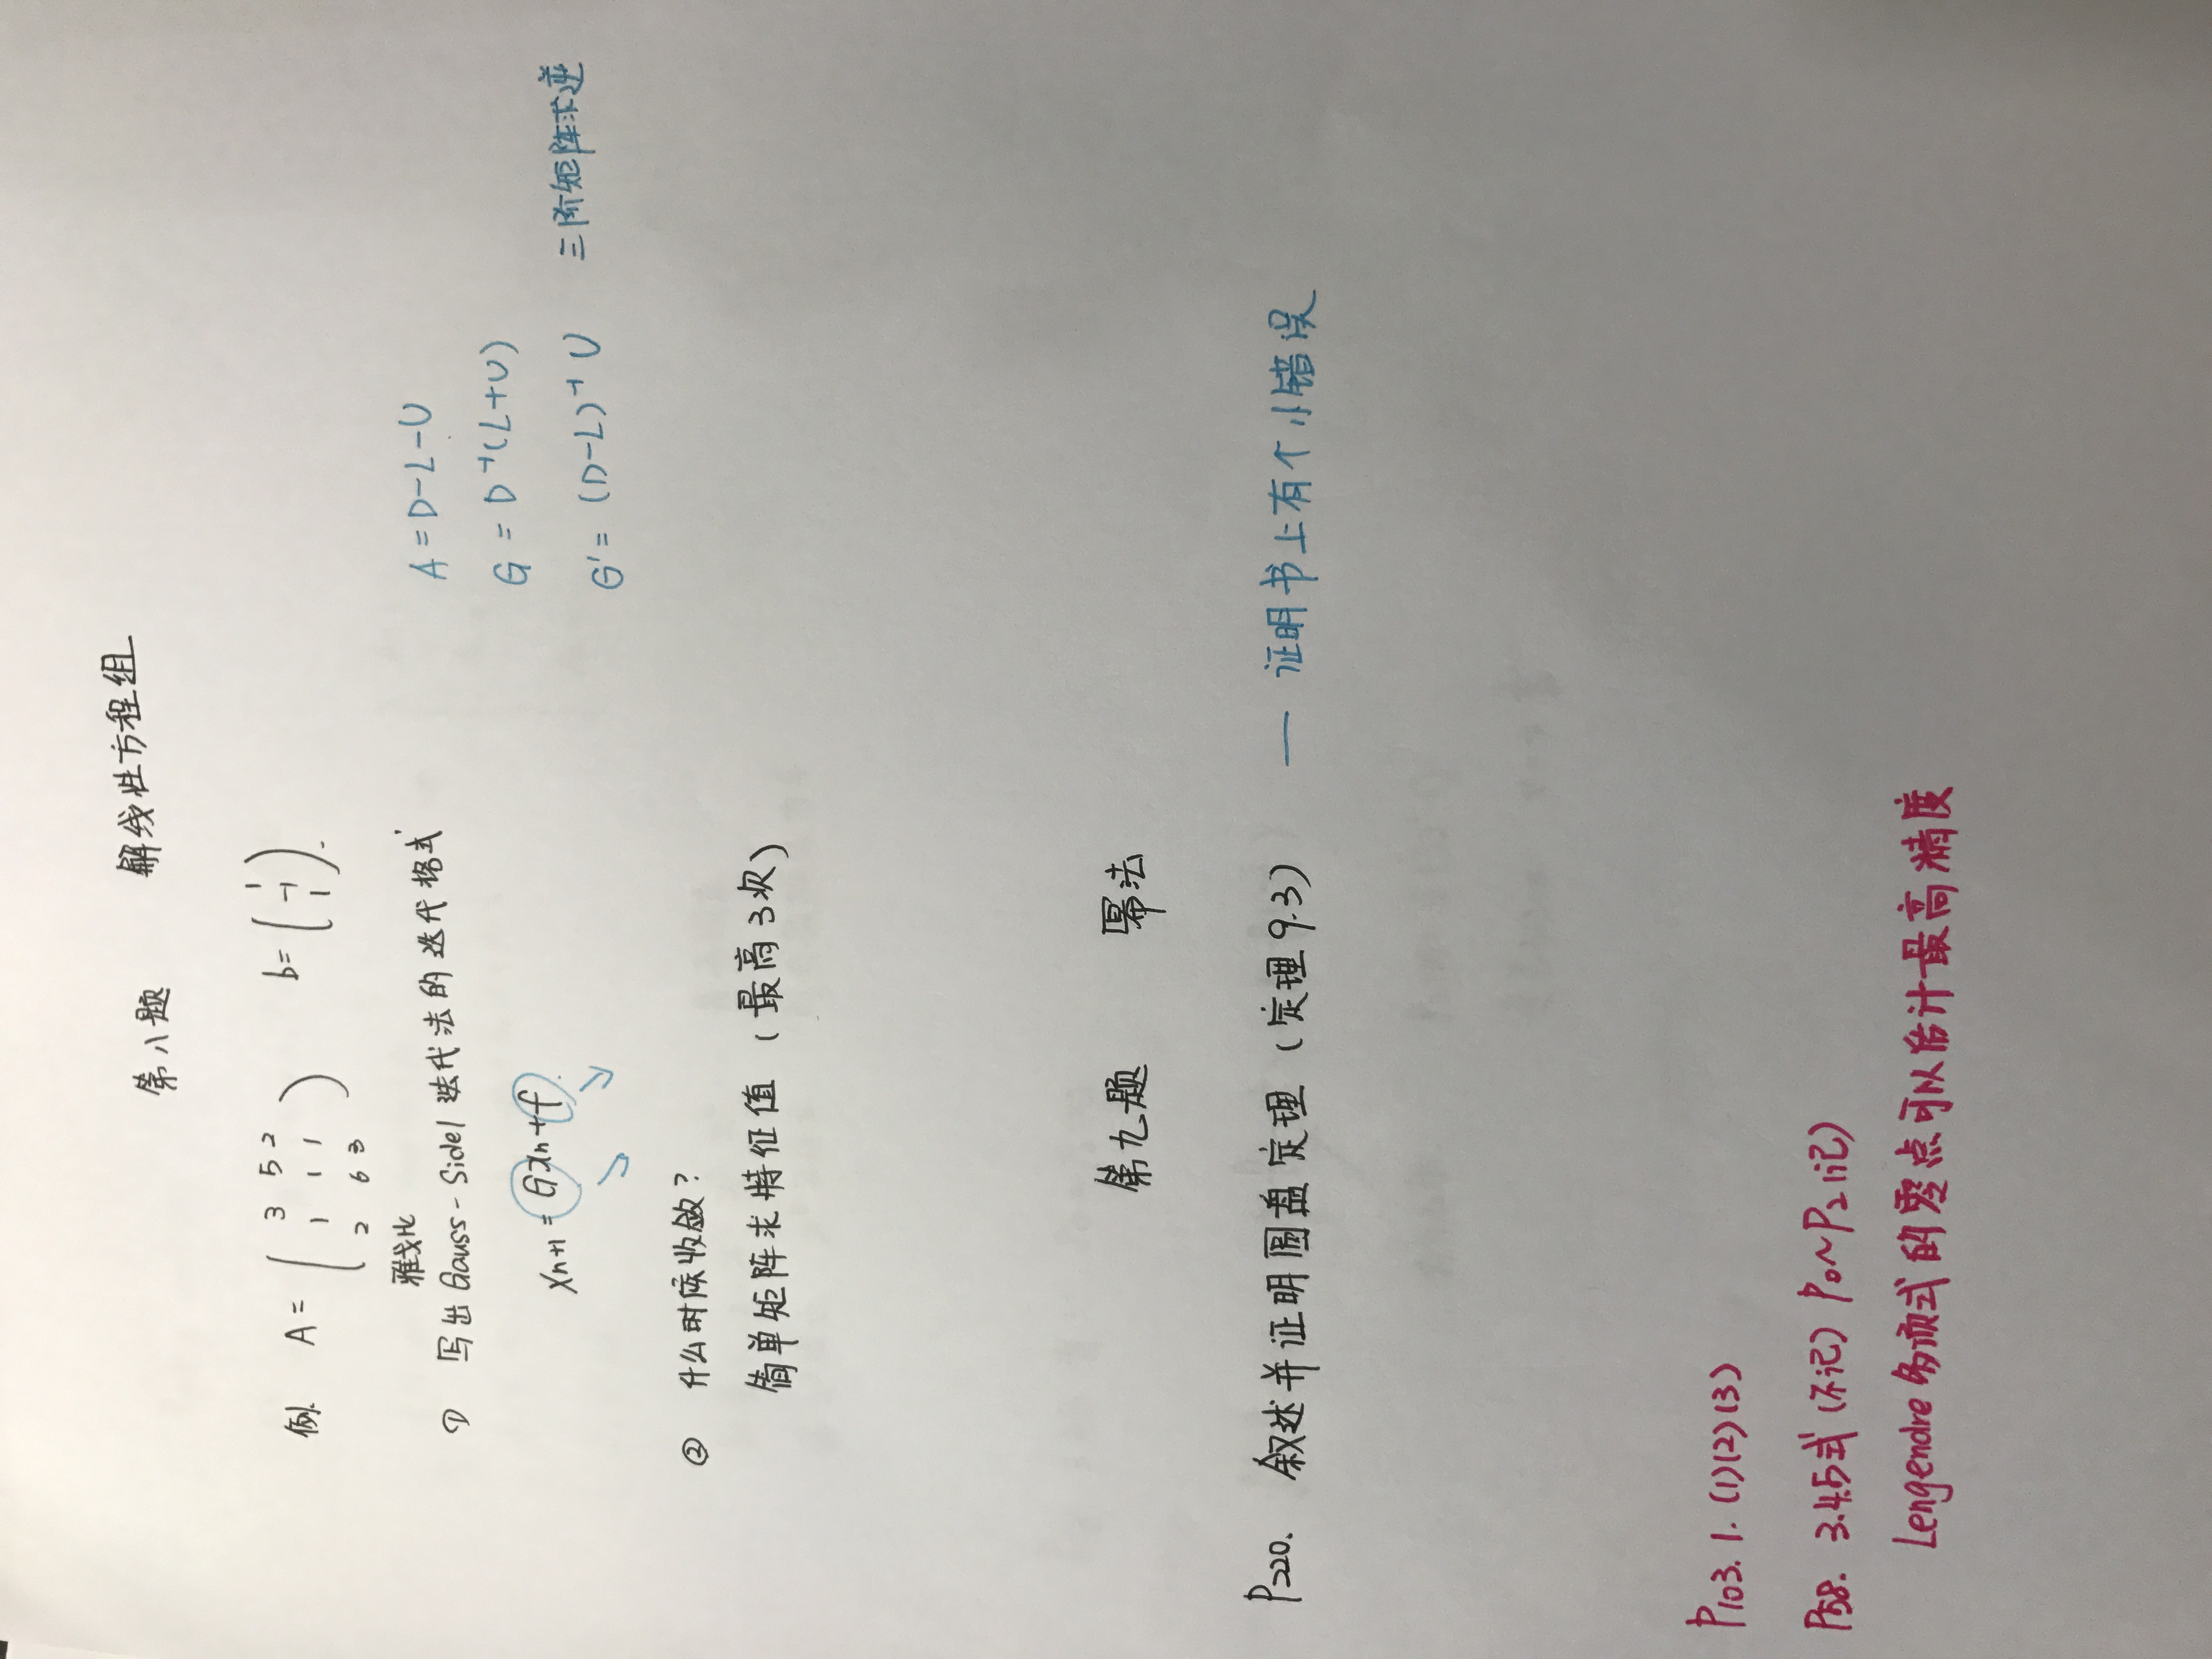 第八题 解线性方程组
例. A = ( 3 5 2 b = ( 1
1 1 1 ) -1
2 6 3 1 ).
雅戈比
① 写出 Gauss-Sidel 迭代法的迭代格式
Xn+1 = Gxn+f.
A = D-L-U
G = D⁻¹(L+U)
G' = (D-L)⁻¹ U 三阶矩阵求逆
② 什么时候收敛?
简单矩阵求特征值 (最高3次)
第九题 幂法
P220. 叙述并证明圆盘定理 (定理9.3) — 证明书上有个小错误
P103. 1. (1)(2)(3)
P58. 3.4.5式 (不记) P₀~P₂ (记)
Lengendre 多项式的零点可以估计最高精度